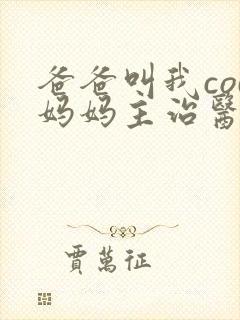 爸爸叫我co
妈妈主治醫
賈萬征